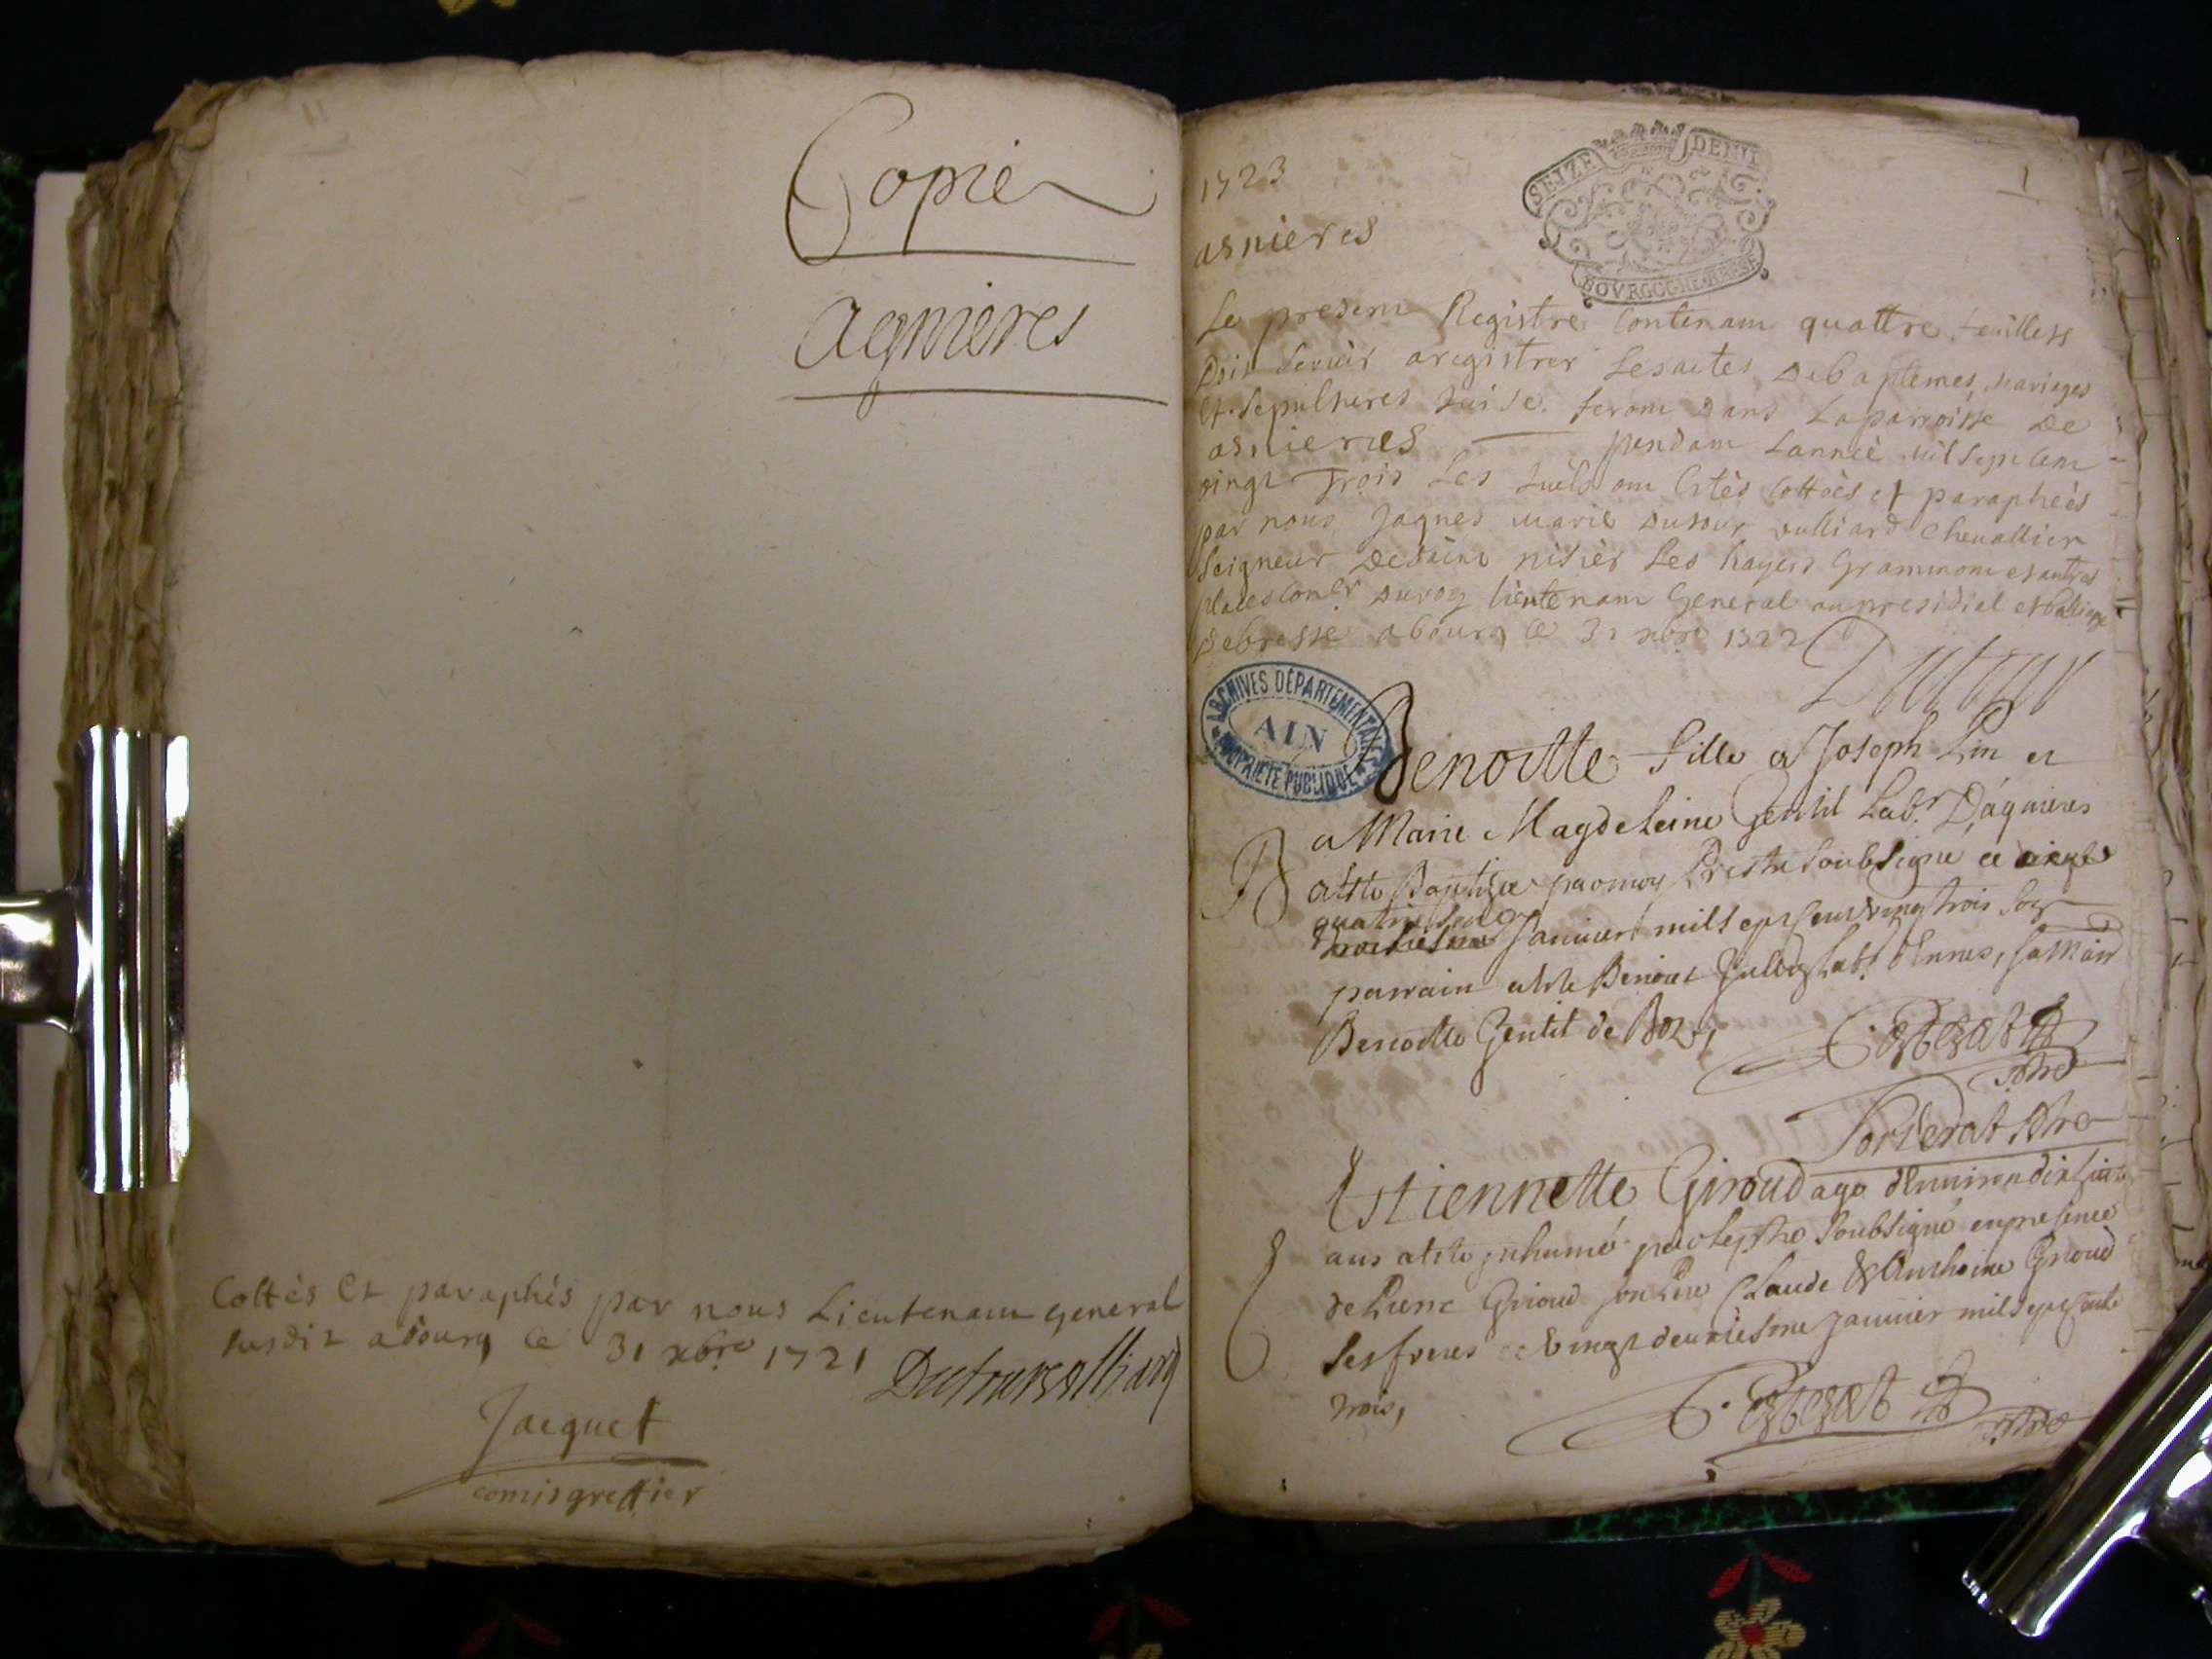 11
Copie
Agnieres
Cottès Et paraphès par nous Lieutenam general
susdit a bourg ce 31 xbre 1721
Dutourvulliard
Jacquet
comis greffier
1723
1
SEIZE DENII
BOVRGOGNE BRESSE
asnieres
Le presem Registre Contenam quattre feuillets
Doit servir aregistrer Les actes debaptemes, mariages
Et sepultures qui se feront dans Laparroisse De
asnieres pendam Lanneè mil sept cem
vingt Trois Les quels om Estès Cottoès et parapheès
par nous Jaques marie dutour vulliard chevallier
seigneur de saint nisièr Les hayes Grammom et autres
places Coner du roy lieutenam General au presidial et balliage
de bresse a bourg Ce 31 xbre 1722
Dutour
ARCHIVES DÉPARTEMENTALES
AIN
PROPRIÉTÉ PUBLIQUE
Benoitte fille a Joseph Pin et
a Marie Magdeleine Gentil Labr. D'agnieres
B
a esté Baptisée par moy Prestre soubsigné ce vingt
quatriesme
Janvier mil sept cent vingt trois son
parrain a esté Benoit Labr. sa Mar
Benoitte Gentil de Boz,
ptre
ptre
Estiennette Giroud agé d'environ dix huit
ans a esté inhumé par le ptre soubsigné en presence
de Pierre Giroud son Pere Claude & Anthoine Giroud
ses freres ce vingt deuxiesme Janvier mil sept cent
trois,
ptre